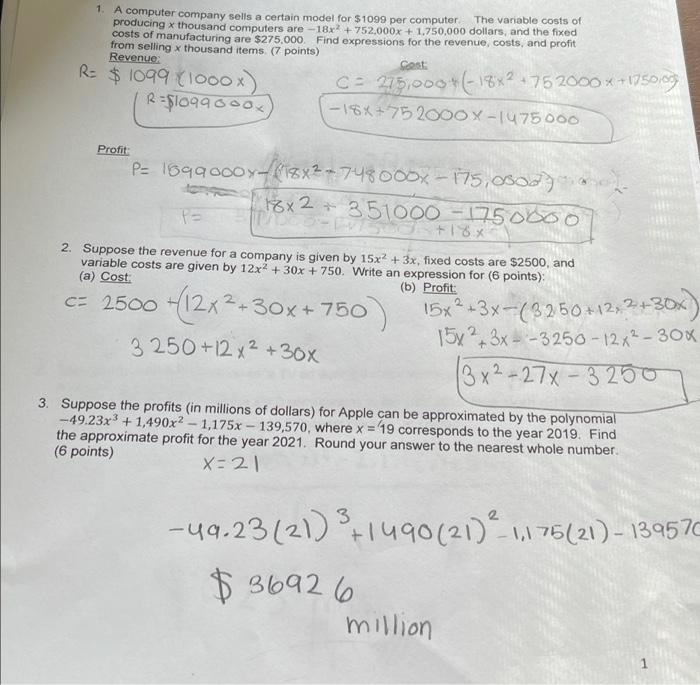 1. A computer company sells a certain model for $1099 per computer. The variable costs of
producing x thousand computers are −18x² + 752,000x + 1,750,000 dollars, and the fixed
costs of manufacturing are $275,000. Find expressions for the revenue, costs, and profit
from selling x thousand items. (7 points)
Revenue:
Cost:
R= $1099(1000x)
C = 275,000+(-18x²+752000x+1750,00
R=$1099000x
-18x+752000x-1475000
Profit:
P= 1099000x-(18x²+748000x-175,000
P=
18x2 + 351000 - 1750000
+18x
2. Suppose the revenue for a company is given by 15x² + 3x, fixed costs are $2500, and
variable costs are given by 12x² + 30x + 750. Write an expression for (6 points):
(a) Cost:
(b) Profit:
C= 2500+(12x²+30x+750)
15x²+3x-(3250+12x²+30x)
3250+12x²+30x
15x²+3x--3250-12x²-30x
3x²-27x-3250
3. Suppose the profits (in millions of dollars) for Apple can be approximated by the polynomial
−49.23x³ + 1,490x² − 1,175x − 139,570, where x = 19 corresponds to the year 2019. Find
the approximate profit for the year 2021. Round your answer to the nearest whole number.
(6 points)
x=21
-49.23(21)³+1490(21)²-1,175(21)-139570
$36926
million
1